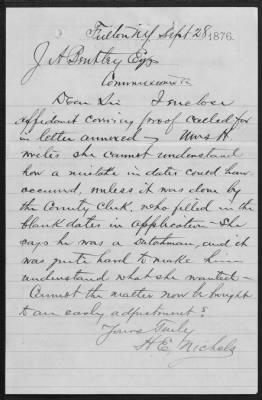 Fulton NY Sept 28 1876.
J A Bentley Esq
Commissioner
Dear Sir I enclose
affidavit covering proof called for
in letter annexed – Mrs H
writes she cannot understand
how a mistake in dates could have
occurred, unless it was done by
the County Clerk. who filled in the
blank dates in application – She
says he was a Dutchman, and it
was quite hard to make him
understand what she wanted –
Cannot the matter now be brought
to an early adjustment?
Yours Truly
H E Nichols